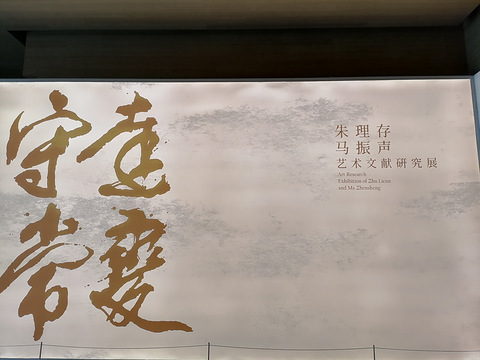 達變
守常
朱理存
马振声
艺术文献研究展
Art Research
Exhibition of Zhu Licun
and Ma Zhensheng